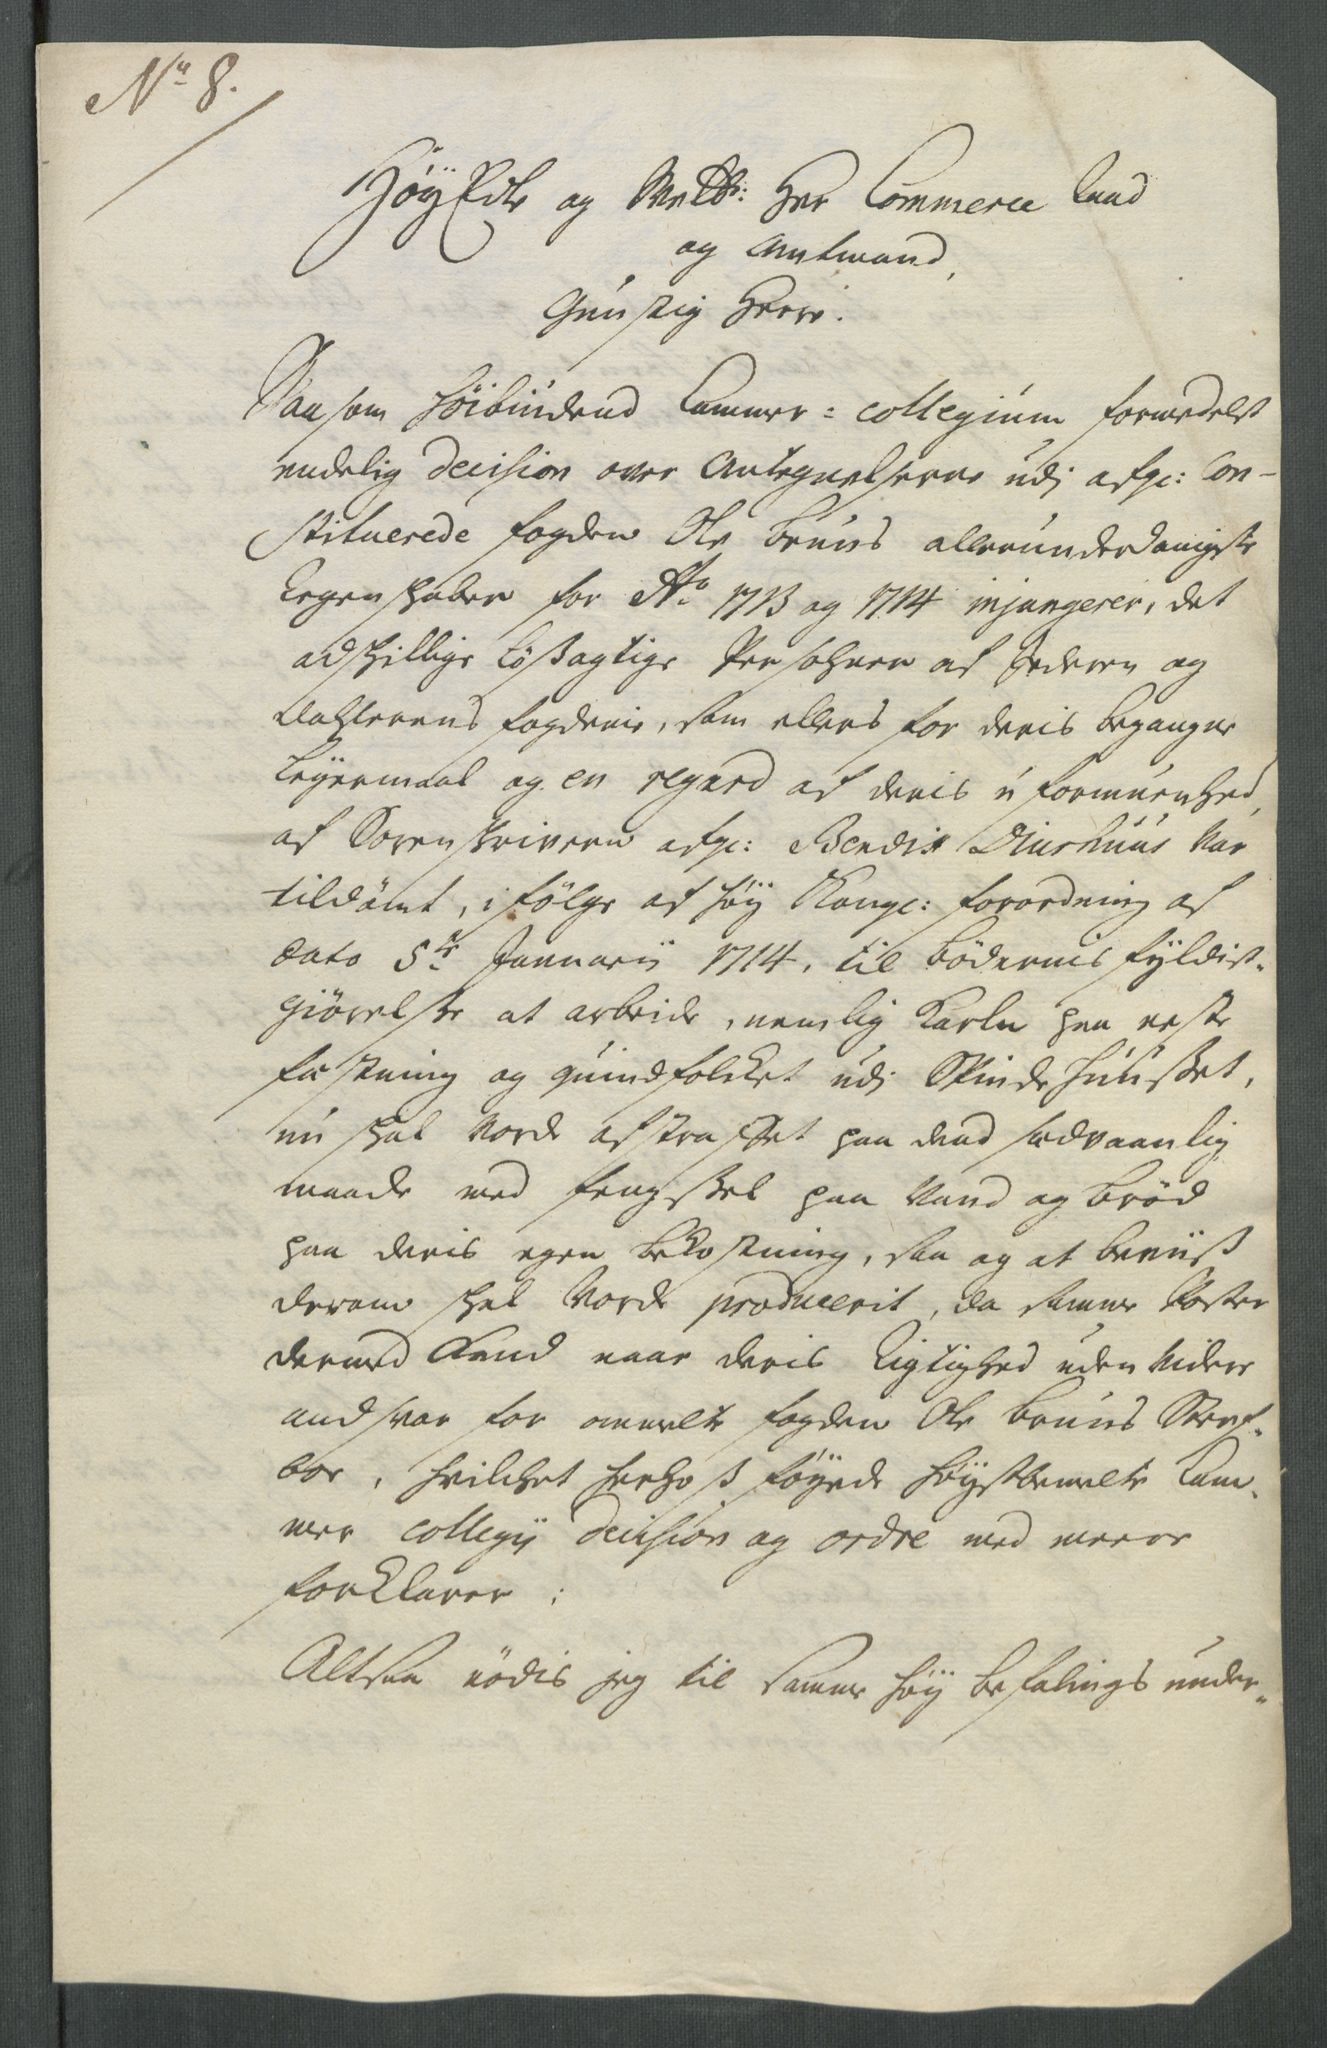 No 8.
HøyEdle og Welb: Her Commerce Raad
og Amtmand,
Gunstig Herre.
Saasom Høibiudend Cammer = Collegium formedelst
endelig Decision over Antegnelserne udi afg: Con-
stituerede fogden Ole Bruuns allerunderdanigste
Regenskaber for Ao 1713 og 1714 injungerer, det
adskillige Løsagtige Persohner af Jederen og
Dahlernes fogderie, som ellers for deris begangne
Leyermaal og en regard af deris uformuenhed,
af Sorenskriveren afg: Bendix Diushuus var
tildømt, i følge af høy Kongl: forordning af
dato 5te Januarii 1714, til bødernis fyldist-
giørelse at arbeide, nemlig Karle paa neste
fæstning og quindfolcket udj Spindehuuset,
nu skal vorde afstraffet paa dend sædvaanlig
maade med fengsel paa Vand og brød
paa deris egen bekostning, saa og at beviis
derom skal vorde producerit, da samme Poster
dermed Kand naae deris Rigtighed uden videre
andsvar for ommelte fogden Ole Bruuns Sterf-
boe, hvilchet herhos føyede høystbemelte Cam-
mer Collegii Decision og ordre med meere
forklarer;
Altsaa nødis jeg til samme høy befalings under-